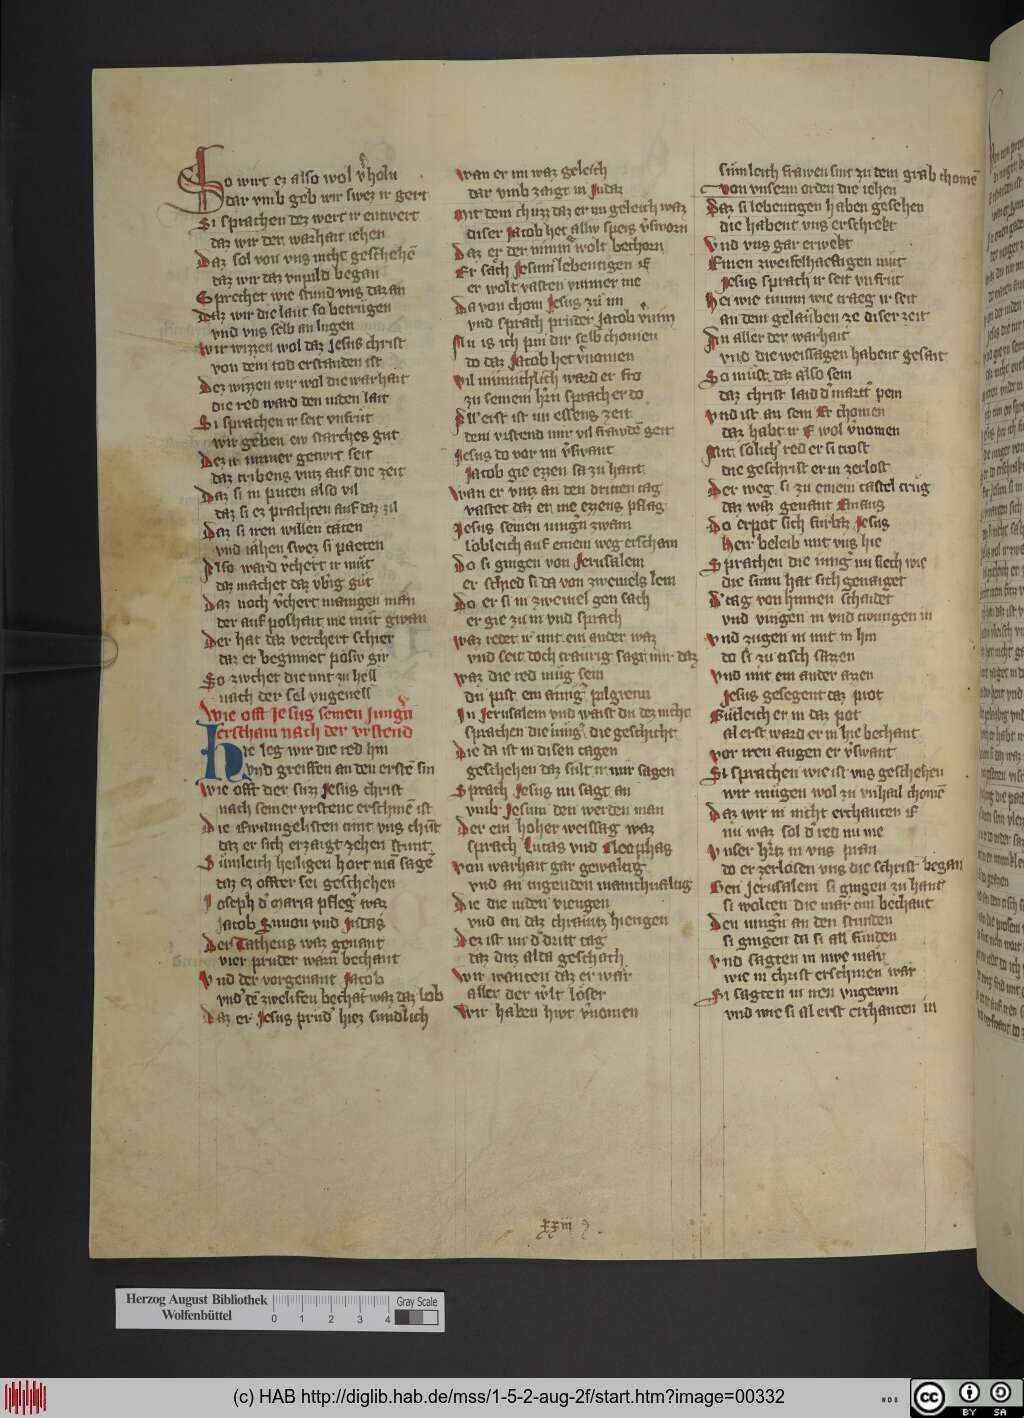 So wirt ez also wol v͛holn
dar vmb geb wir swez ir gert
Si sprachen dez wert ir entwert
daz wir der warhait iehen
Daz sol von vns nicht geschehē
daz wir daz vnpild began
Sprechet wie stund vns daz an
Daz wir die laut so betrugen
vnd vns selb an lugen
Wir wizzen wol daz Jesus christ
von dem tod erstanden ist
Dez wizzen wir wol die warhait
die red ward den iuden lait
Si sprachen ir seit vnfrut
wir geben ew starches gut
Dez ir immer getiwrt seit
daz tribens vntz auf die zeit
Daz si in puten also vil
daz si ez prachten auf daz zil
Daz si iren willen taten
vnd iahen swez si paeten
Also ward v͛chert ir mut
daz machet daz vbig gut
Daz noch v͛chert manigen man
der auf poshait ie mut gwan
Der hat daz verchert schier
daz er beginnet poser gir
So zwchet die mit zu hell
nach der sel vngenell
Wie offt Jesus seinen Jung͛n
erscham nach der vrstend
Hie leg wir die red hin
vnd greiffen an den erstē sin
Wie offt der suzz Jesus christ
nach seiner vrstent erschinē ist
Die Ewangelisten tunt vns chūt
daz er sich erzaigt zehen stunt
Sumleich heiligen hort mā sagē
daz ez offter sei geschehen
Joseph d͛ Maria pfleg͛ waz
Jacob Simon vnd Judas
Der Tatheus waz genant
vier pruder warn bechant
Vnd der vorgenant Jacob
vnd dē zwelifen bechāt waz daz lob
Daz er Jesus prud͛ hiez sund͛lich
Wan er im waz geleich
dar vmb zaigt in Judaz
Mit dem chuzz daz er im geleich waz
diser Jacob het allw speis v͛sworn
Daz er der nimm͛ wolt bechorn
Er sach Jesum lebentigen E
er wolt vasten immer me
Da von chom Jesus zu im
vnd sprach pruder Jacob v͛nim
Nu is ich pin dir selb chomen
do daz Jacob het v͛nomen
Vil minnichleich ward er fro
zu seinem h͛rn sprach er do
All͛erst ist nu essens zeit
dein vrstend mir vil frawdē geit
Jesus do vor im v͛swant
Jacob gie ezzen sa zu hant
Wan er vntz an den dritten tag
vastet daz er nie ezzens pflag
Jesus seinen iung͛n zwain
lobleich auf einem weg erscham
Do si gingen von Jerusalem
er schied si da von zweiuels lem
Do er si in zweiuel gen sach
er gie zu in vnd sprach
Waz redet ir mit ein ander waz
vnd seit doch traurig sagt mir daz
Waz die red mug sein
du pist ein ainig͛ pilgreim
In Jerusalem vnd waist du dez nicht
sprachen die iung͛ die geschicht
Die da ist in disen tagen
geschehen daz sült ir mir sagen
Sprach Jesus nu sagt an
vmb Jesum den werden man
Der ein hoher weissag waz
sprach Lucas vnd Cleophas
Von warhait gar gewaltig
vnd an tugenden manichualtig
Die die iuden viengen
vnd an daz chrawtz hiengen
Dez ist nu d͛ dritt tag
daz ditz alda geschach
Wir wanten daz er war
aller der w͛lt loser
Wir haben hiwt v͛nomen
Sumleich frawen sint zu dem grab chomē
von vnserm orden die iehen
Daz si lebentigen haben gesehen
die habent vns erschrekt
Vnd vns gar erwekt
Einen zweifelhaeftigen mut
Jesus sprach ir seit vnfrut
Hei wie tumm wie traeg ir seit
an dem gelauben ze diser zeit
An aller der warhait
vnd die weissagen habent gesait
So must daz also sein
daz christ laid d͛ mart͛ pein
Vnd ist an sein Er chomen
daz habt ir E wol v͛nomen
Mit solich͛ red er si trost
die geschrift er in zerlost
Der weg si zu einem castel trug
daz waz genant Emaus
Do erpot sich furbaz Jesus
Herr beleib mit vns hie
Sprachen die iung͛ nu siech wie
die sunn hat sich genaiget
D͛ tag von hinnen schaidet
vnd vingen in vnd twungen in
Vnd zugen in mit in hin
do si zu tisch sazzen
Vnd mit ein ander azzen
Jesus gesegent daz prot
Gutleich er in daz pot
al erst ward er in hie bechant
Vor iren augen er v͛swant
Si sprachen wie ist vns geschehen
wir mugen wol zu vnhail chomē
Daz wir in nicht erchanten E
nu waz sol d͛ red nu me
Vnser h͛tz in vns pran
do er zerlosen vns die schrift began
Gen Jerusalem si gingen zu hant
si wolten die mar tun bechant
Den iung͛n an den stunden
si gingen da si all funden
Vnd sagten in niwe mar
wie in christ erschinen war
Si sagten in irn vngewin
vnd wie si al erst erchanten in
xxiii
Herzog August Bibliothek
Wolfenbüttel
0 1 2 3 4
Gray Scale
(c) HAB http://diglib.hab.de/mss/1-5-2-aug-2f/start.htm?image=00332
cc BY SA